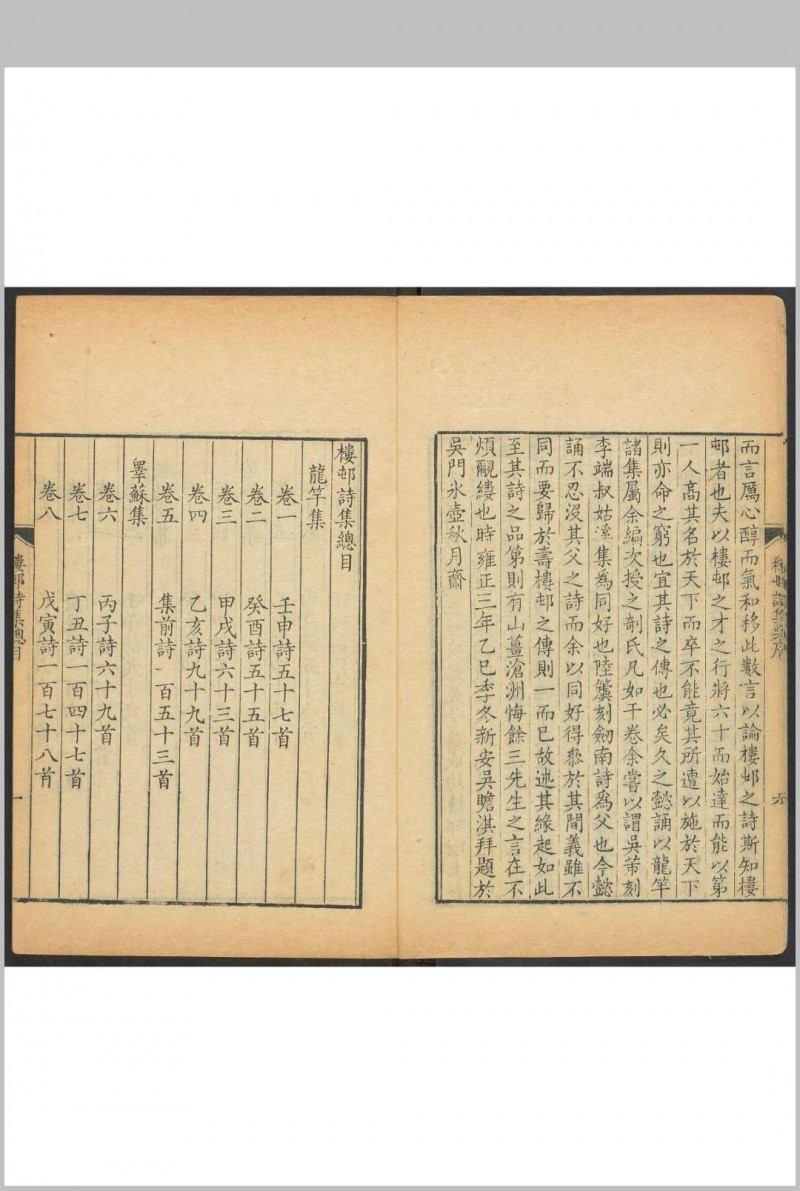 而言厲心醇而氣和移此數言以論樓邨之詩斯知樓
邨者也夫以樓邨之才之行將六十而始達而能以第
一人高其名於天下而卒不能竟其所遭以施於天下
則亦命之窮也宜其詩之傳也必矣久之懿誦以龍竿
諸集屬余編次授之剞氏凡如干卷余嘗以謂吳芾刻
李端叔姑溪集為同好也陸籅刻劒南詩為父也今懿
誦不忍沒其父之詩而余以同好得叅於其間義雖不
同而要歸於壽樓邨之傳則一而已故述其緣起如此
至其詩之品第則有山薑滄洲悔餘三先生之言在不
煩覼縷也時雍正三年乙巳季冬新安吳瞻淇拜題於
吳門氷壺秋月齋
樓邨詩集總目
龍竿集
卷一 壬申詩五十七首
卷二 癸酉詩五十五首
卷三 甲戌詩六十三首
卷四 乙亥詩九十九首
卷五 集前詩一百五十三首
睪蘇集
卷六 丙子詩六十九首
卷七 丁丑詩一百四十七首
卷八 戊寅詩一百七十八首
樓邨詩集總目 一